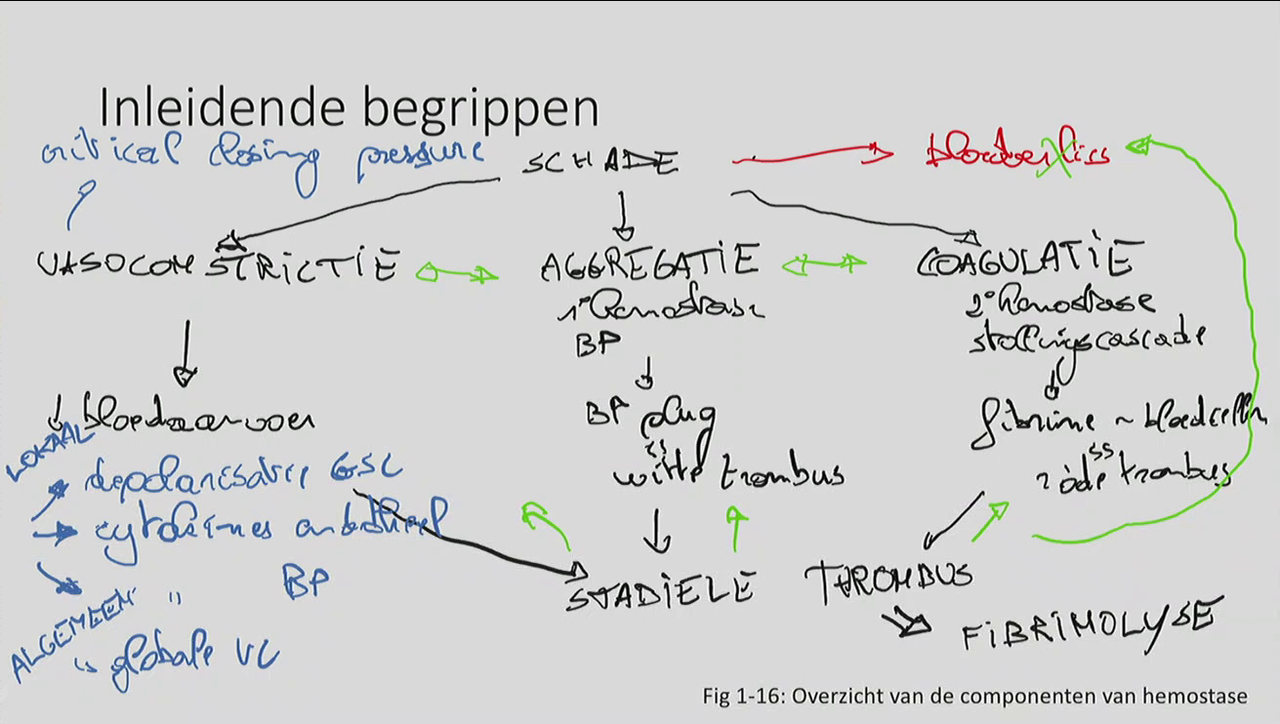 Inleidende begrippen
critical closing pressure
SCHADE
bloedverlies
VASOCONSTRICTIE
AGGREGATIE
COAGULATIE
1° hemostase
2° hemostase
BP
stollingscascade
↓ bloedaanvoer
BP plug
fibrine ~ bloedcellen
LOKAAL
depolarisatie GSC
witte trombus
rode trombus
cytokines endotheel
BP
STABIELE THROMBUS
ALGEMEEN
globale VC
FIBRINOLYSE
Fig 1-16: Overzicht van de componenten van hemostase